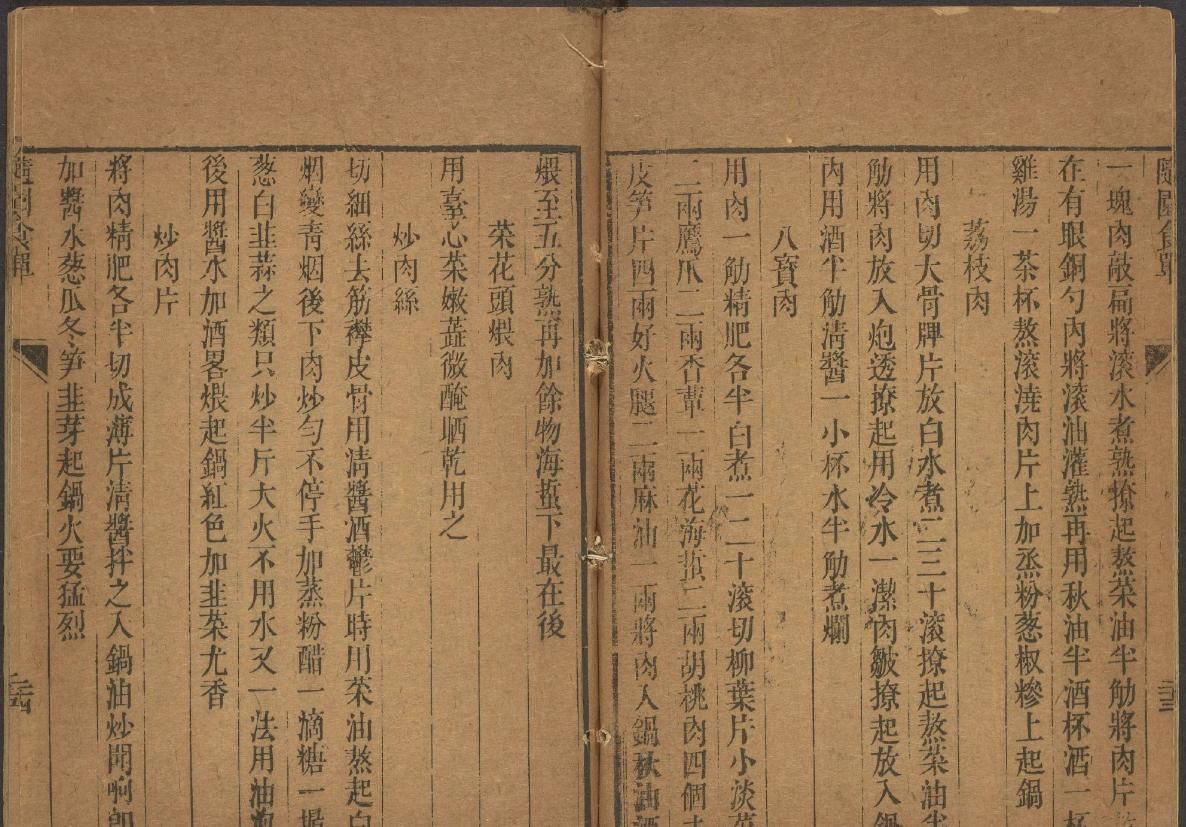 隨園食單
一塊肉敲扁將滾水煮熟撩起熬菜油半觔將肉片放
在有眼銅勺內將滾油灌熟再用秋油半酒杯酒一杯
雞湯一茶杯熬滾澆肉片上加烝粉蔥椒糝上起鍋
荔枝肉
用肉切大骨牌片放白水煮二三十滾撩起熬菜油半
觔將肉放入炮透撩起用冷水一潔肉皺撩起放入鍋
內用酒半觔淸醬一小杯水半觔煮爛
八寶肉
用肉一觔精肥各半白煮一二十滾切柳葉片小淡菜
二兩鷹爪二兩香蕈一兩花海蜇二兩胡桃肉四個去
皮笋片四兩好火腿二兩麻油一兩將肉入鍋秋油酒
煨至五分熟再加餘物海蜇下最在後
菜花頭煨肉
用臺心菜嫩蕋微醃晒乾用之
炒肉絲
切細絲去筋襻皮骨用淸醬酒鬱片時用菜油熬起白
烟變靑烟後下肉炒勻不停手加蒸粉醋一滴糖一撮
葱白韭蒜之類只炒半斤大火不用水又一法用油泡
後用醬水加酒畧煨起鍋紅色加韭菜尤香
炒肉片
將肉精肥各半切成薄片淸醬拌之入鍋油炒聞响即
加醬水葱瓜冬笋韭芽起鍋火要猛烈
隨園食單